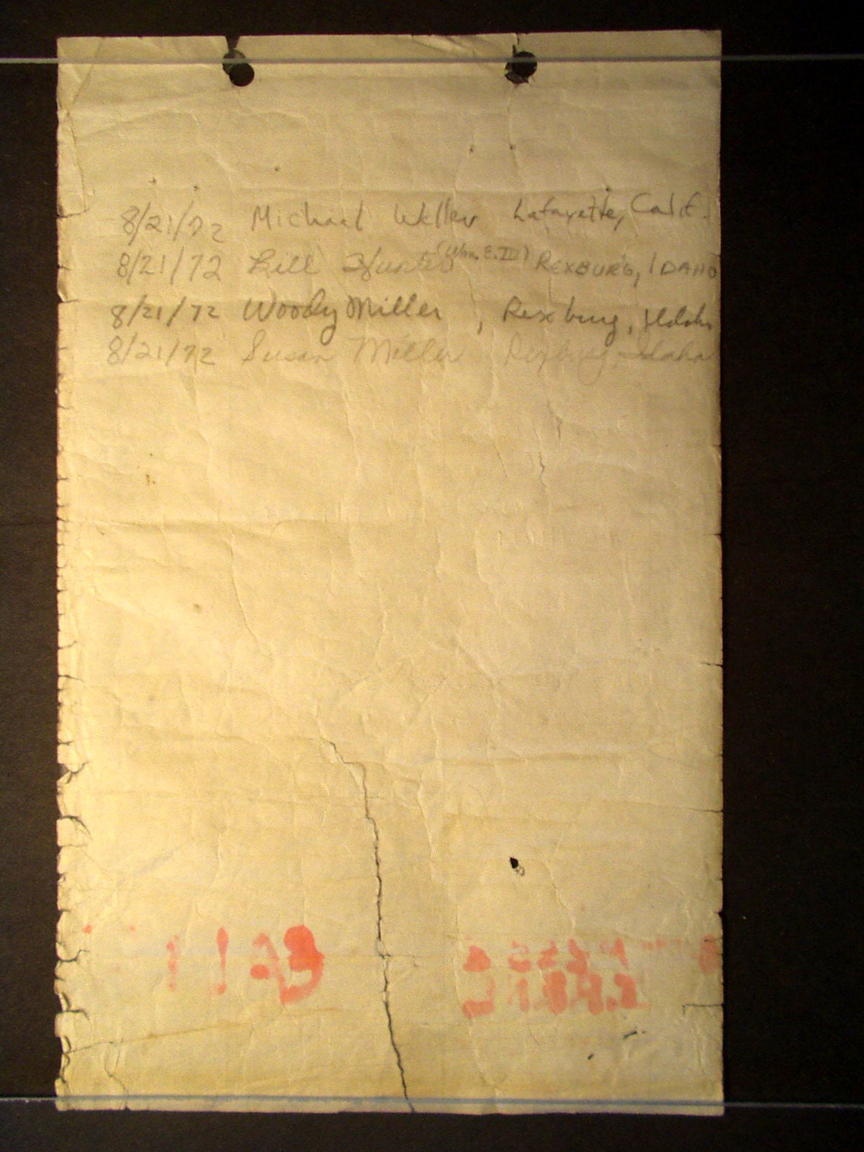 8/21/72 Michael Weller Lafayette, Calif.
8/21/72 Bill Hunter (Wm. E. III) REXBURG, IDAHO
8/21/72 Woody Miller , Rexburg, Idaho
8/21/72 Susan Miller Rexburg, Idaho